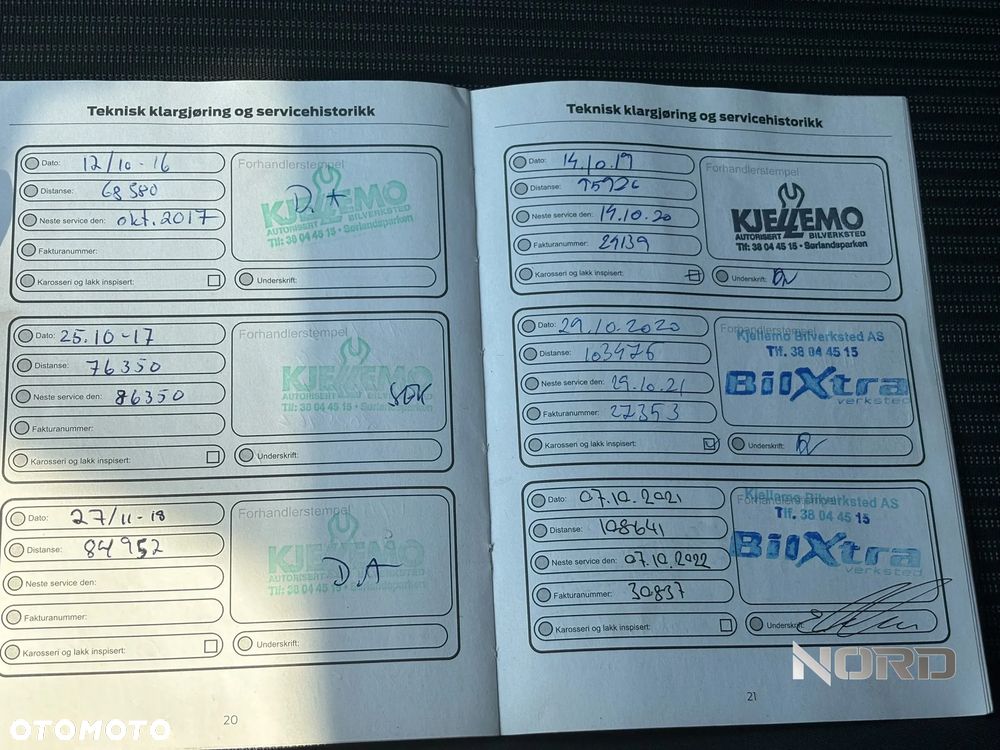 Teknisk klargjøring og servicehistorikk
Dato: 12/10-16
Distanse: 68380
Neste service den: okt. 2017
Fakturanummer:
Karosseri og lakk inspisert:
Forhandlerstempel
D.A
KJELLEMO
AUTORISERT BILVERKSTED
Tlf: 38 04 45 15 • Sørlandsparken
Underskrift:
Dato: 25.10-17
Distanse: 76350
Neste service den: 86350
Fakturanummer:
Karosseri og lakk inspisert:
Forhandlerstempel
KJELLEMO
AUTORISERT BILVERKSTED
Tlf: 38 04 45 15 • Sørlandsparken
Underskrift:
Dato: 27/11-18
Distanse: 84952
Neste service den:
Fakturanummer:
Karosseri og lakk inspisert:
Forhandlerstempel
KJELLEMO
AUTORISERT BILVERKSTED
D.A
Tlf: 38 04 45 15 • Sørlandsparken
Underskrift:
20
Teknisk klargjøring og servicehistorikk
Dato: 14.10.19
Distanse: 95926
Neste service den: 14.10.20
Fakturanummer: 24139
Karosseri og lakk inspisert:
Forhandlerstempel
KJELLEMO
AUTORISERT BILVERKSTED
Tlf: 38 04 45 15 • Sørlandsparken
Underskrift:
Dato: 29.10.2020
Distanse: 103476
Neste service den: 29.10.21
Fakturanummer: 27353
Karosseri og lakk inspisert:
Forhandlerstempel
Kjellemo Bilverksted AS
Tlf. 38 04 45 15
BilXtra
verksted
Underskrift:
Dato: 07.10.2021
Distanse: 108641
Neste service den: 07.10.2022
Fakturanummer: 30837
Karosseri og lakk inspisert:
Forhandlerstempel
Kjellemo Bilverksted AS
Tlf. 38 04 45 15
BilXtra
verksted
Underskrift:
21
NORD
OTOMOTO